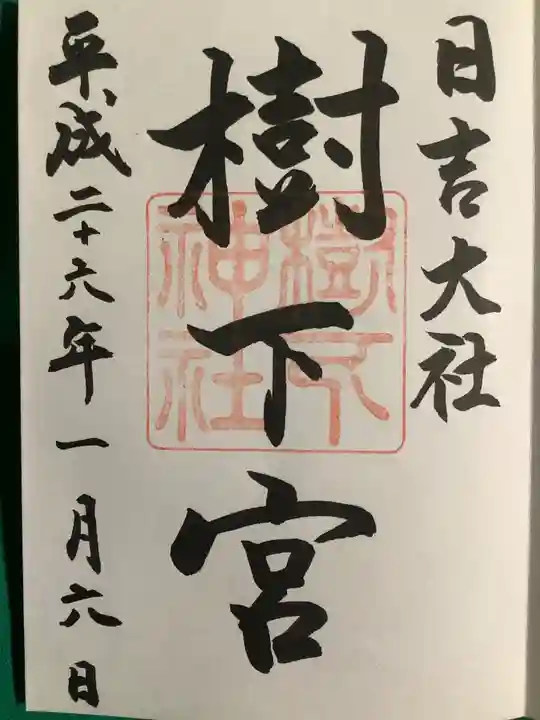 日吉大社
樹下宮
樹下
神社
平成二十六年一月六日